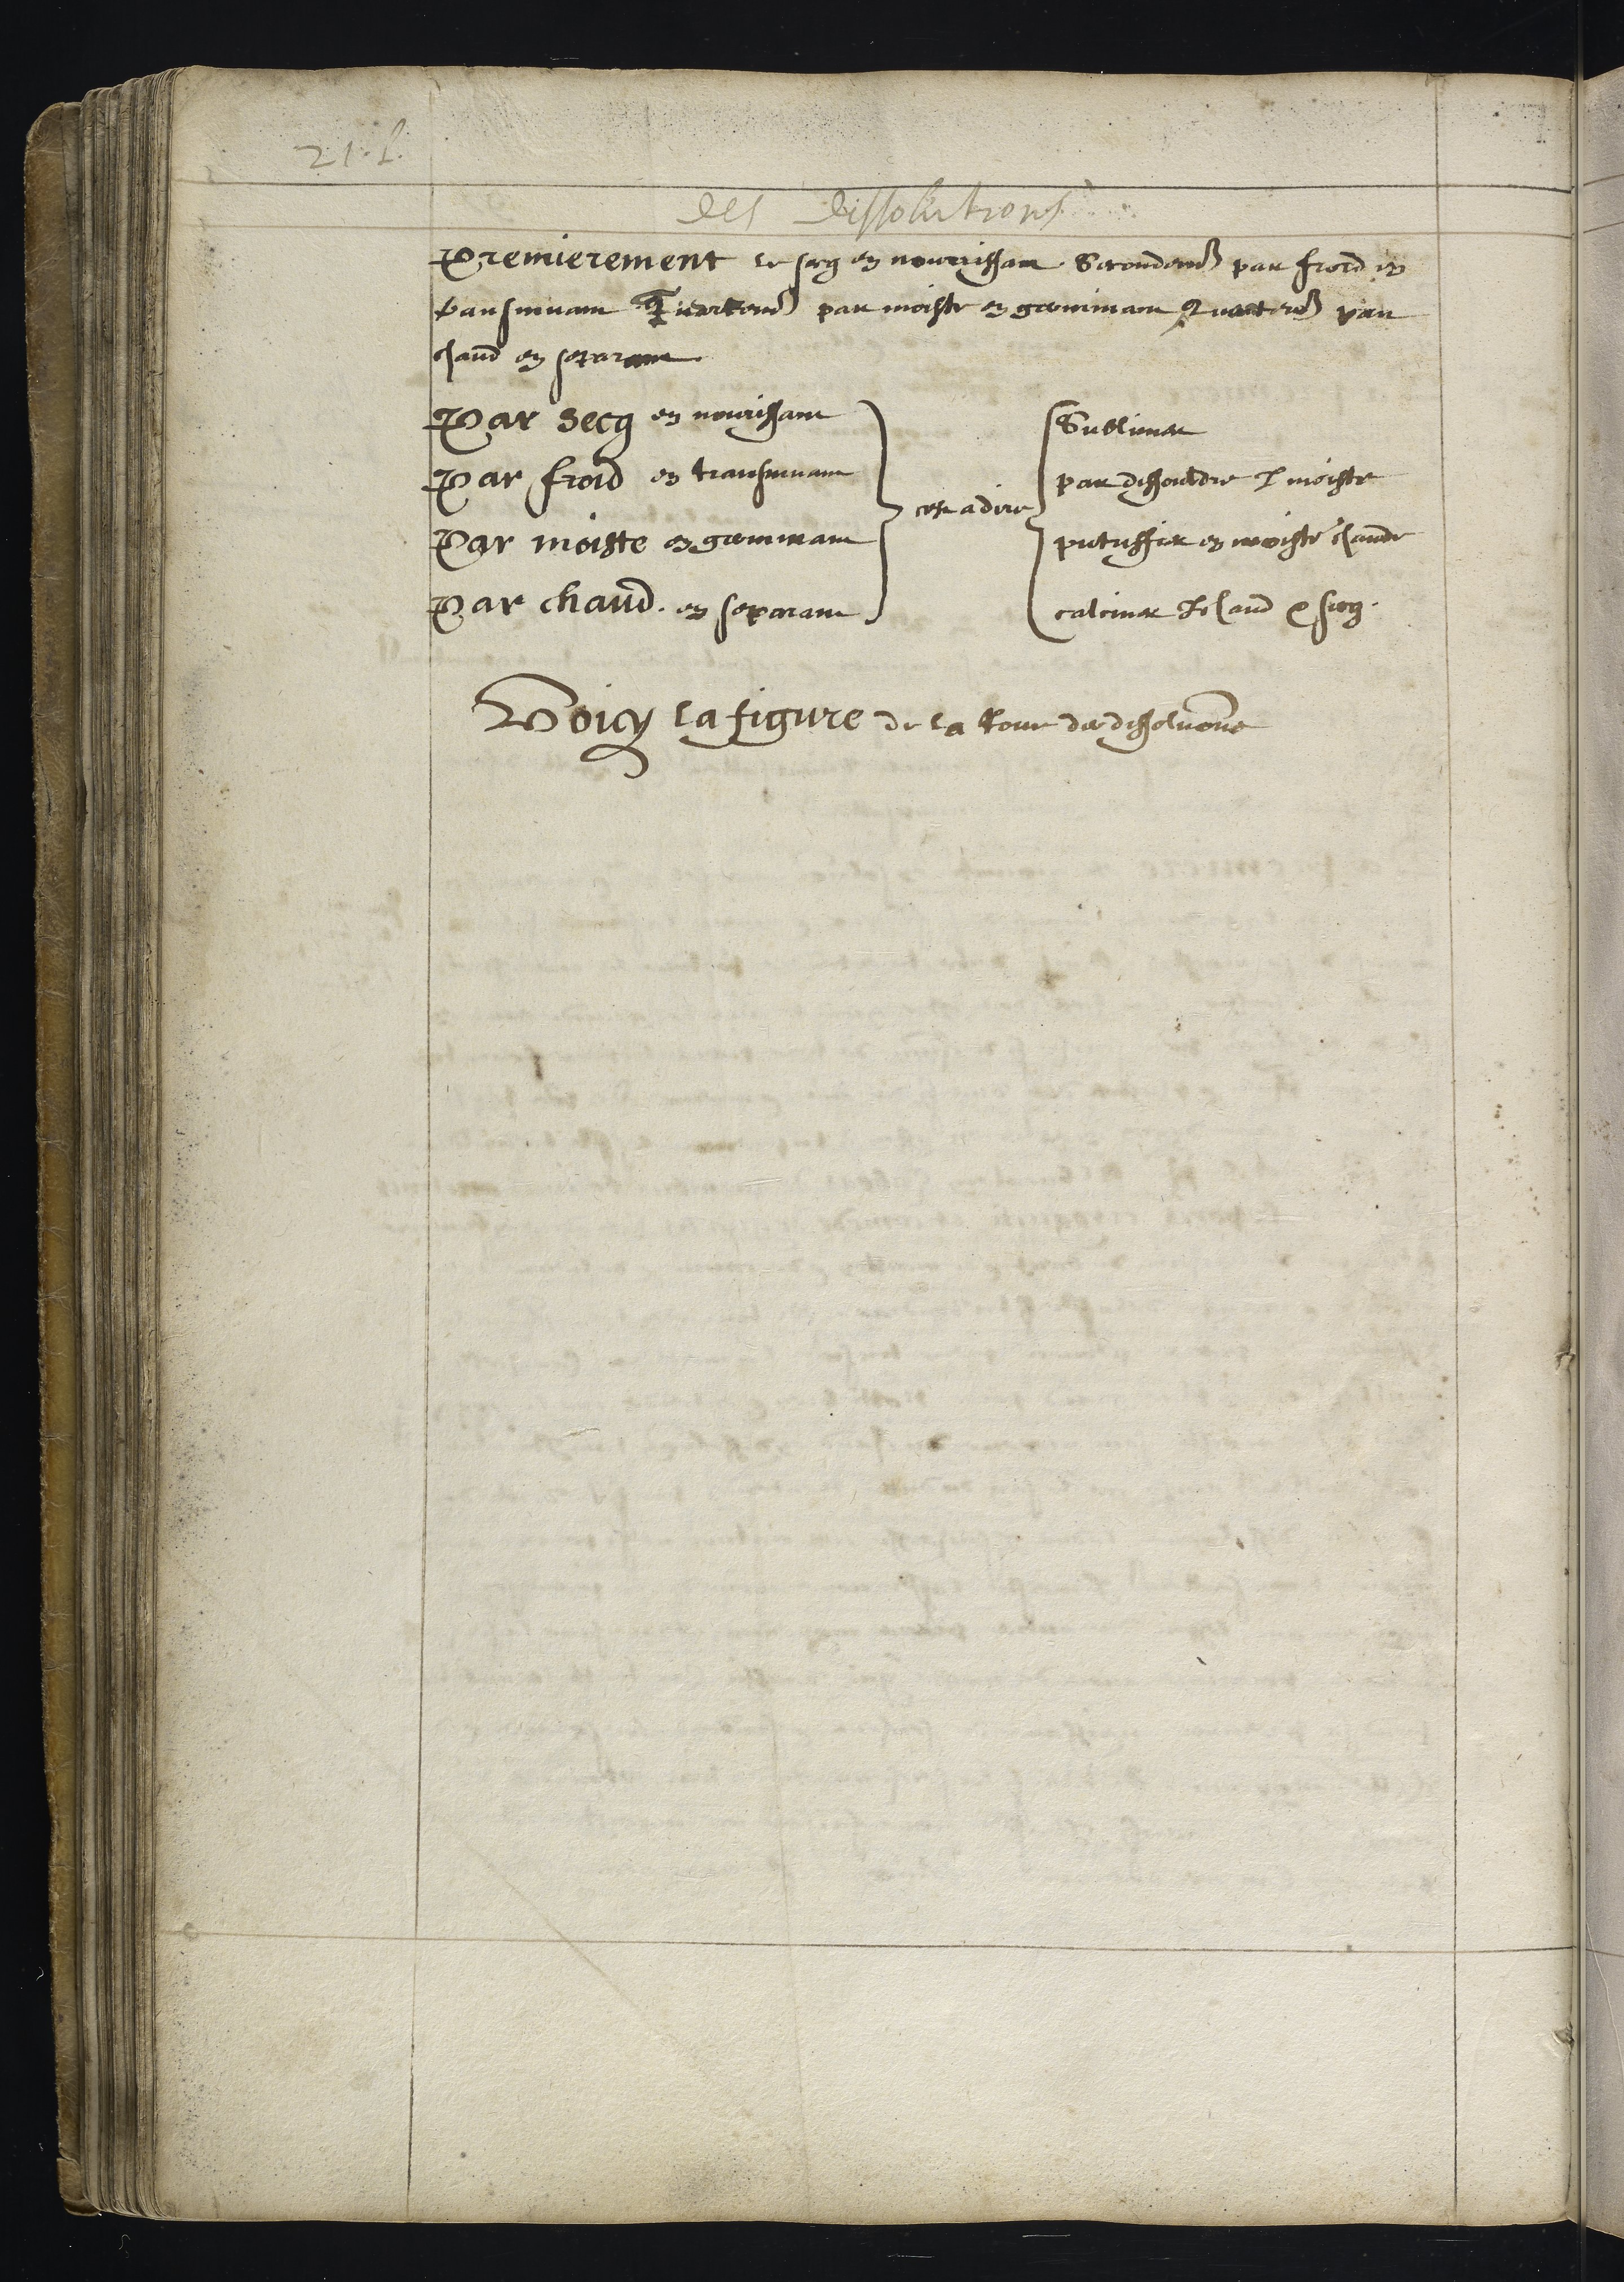 21.
des dissolutions
Premierement le secg en nourrissant Secondemt par froid en
transmuant tiercement par moiste en gommant Quartemt par
chaud en separant
Par secg en nourissant
Par froid en transmuant
Par moiste en gommant
Par chaud. en separant
cest adire
Sublimer
par dissouldre moiste
putrifier en moiste chaude
calciner chaud secg.
Voicy la figure de la tour des dissolutions